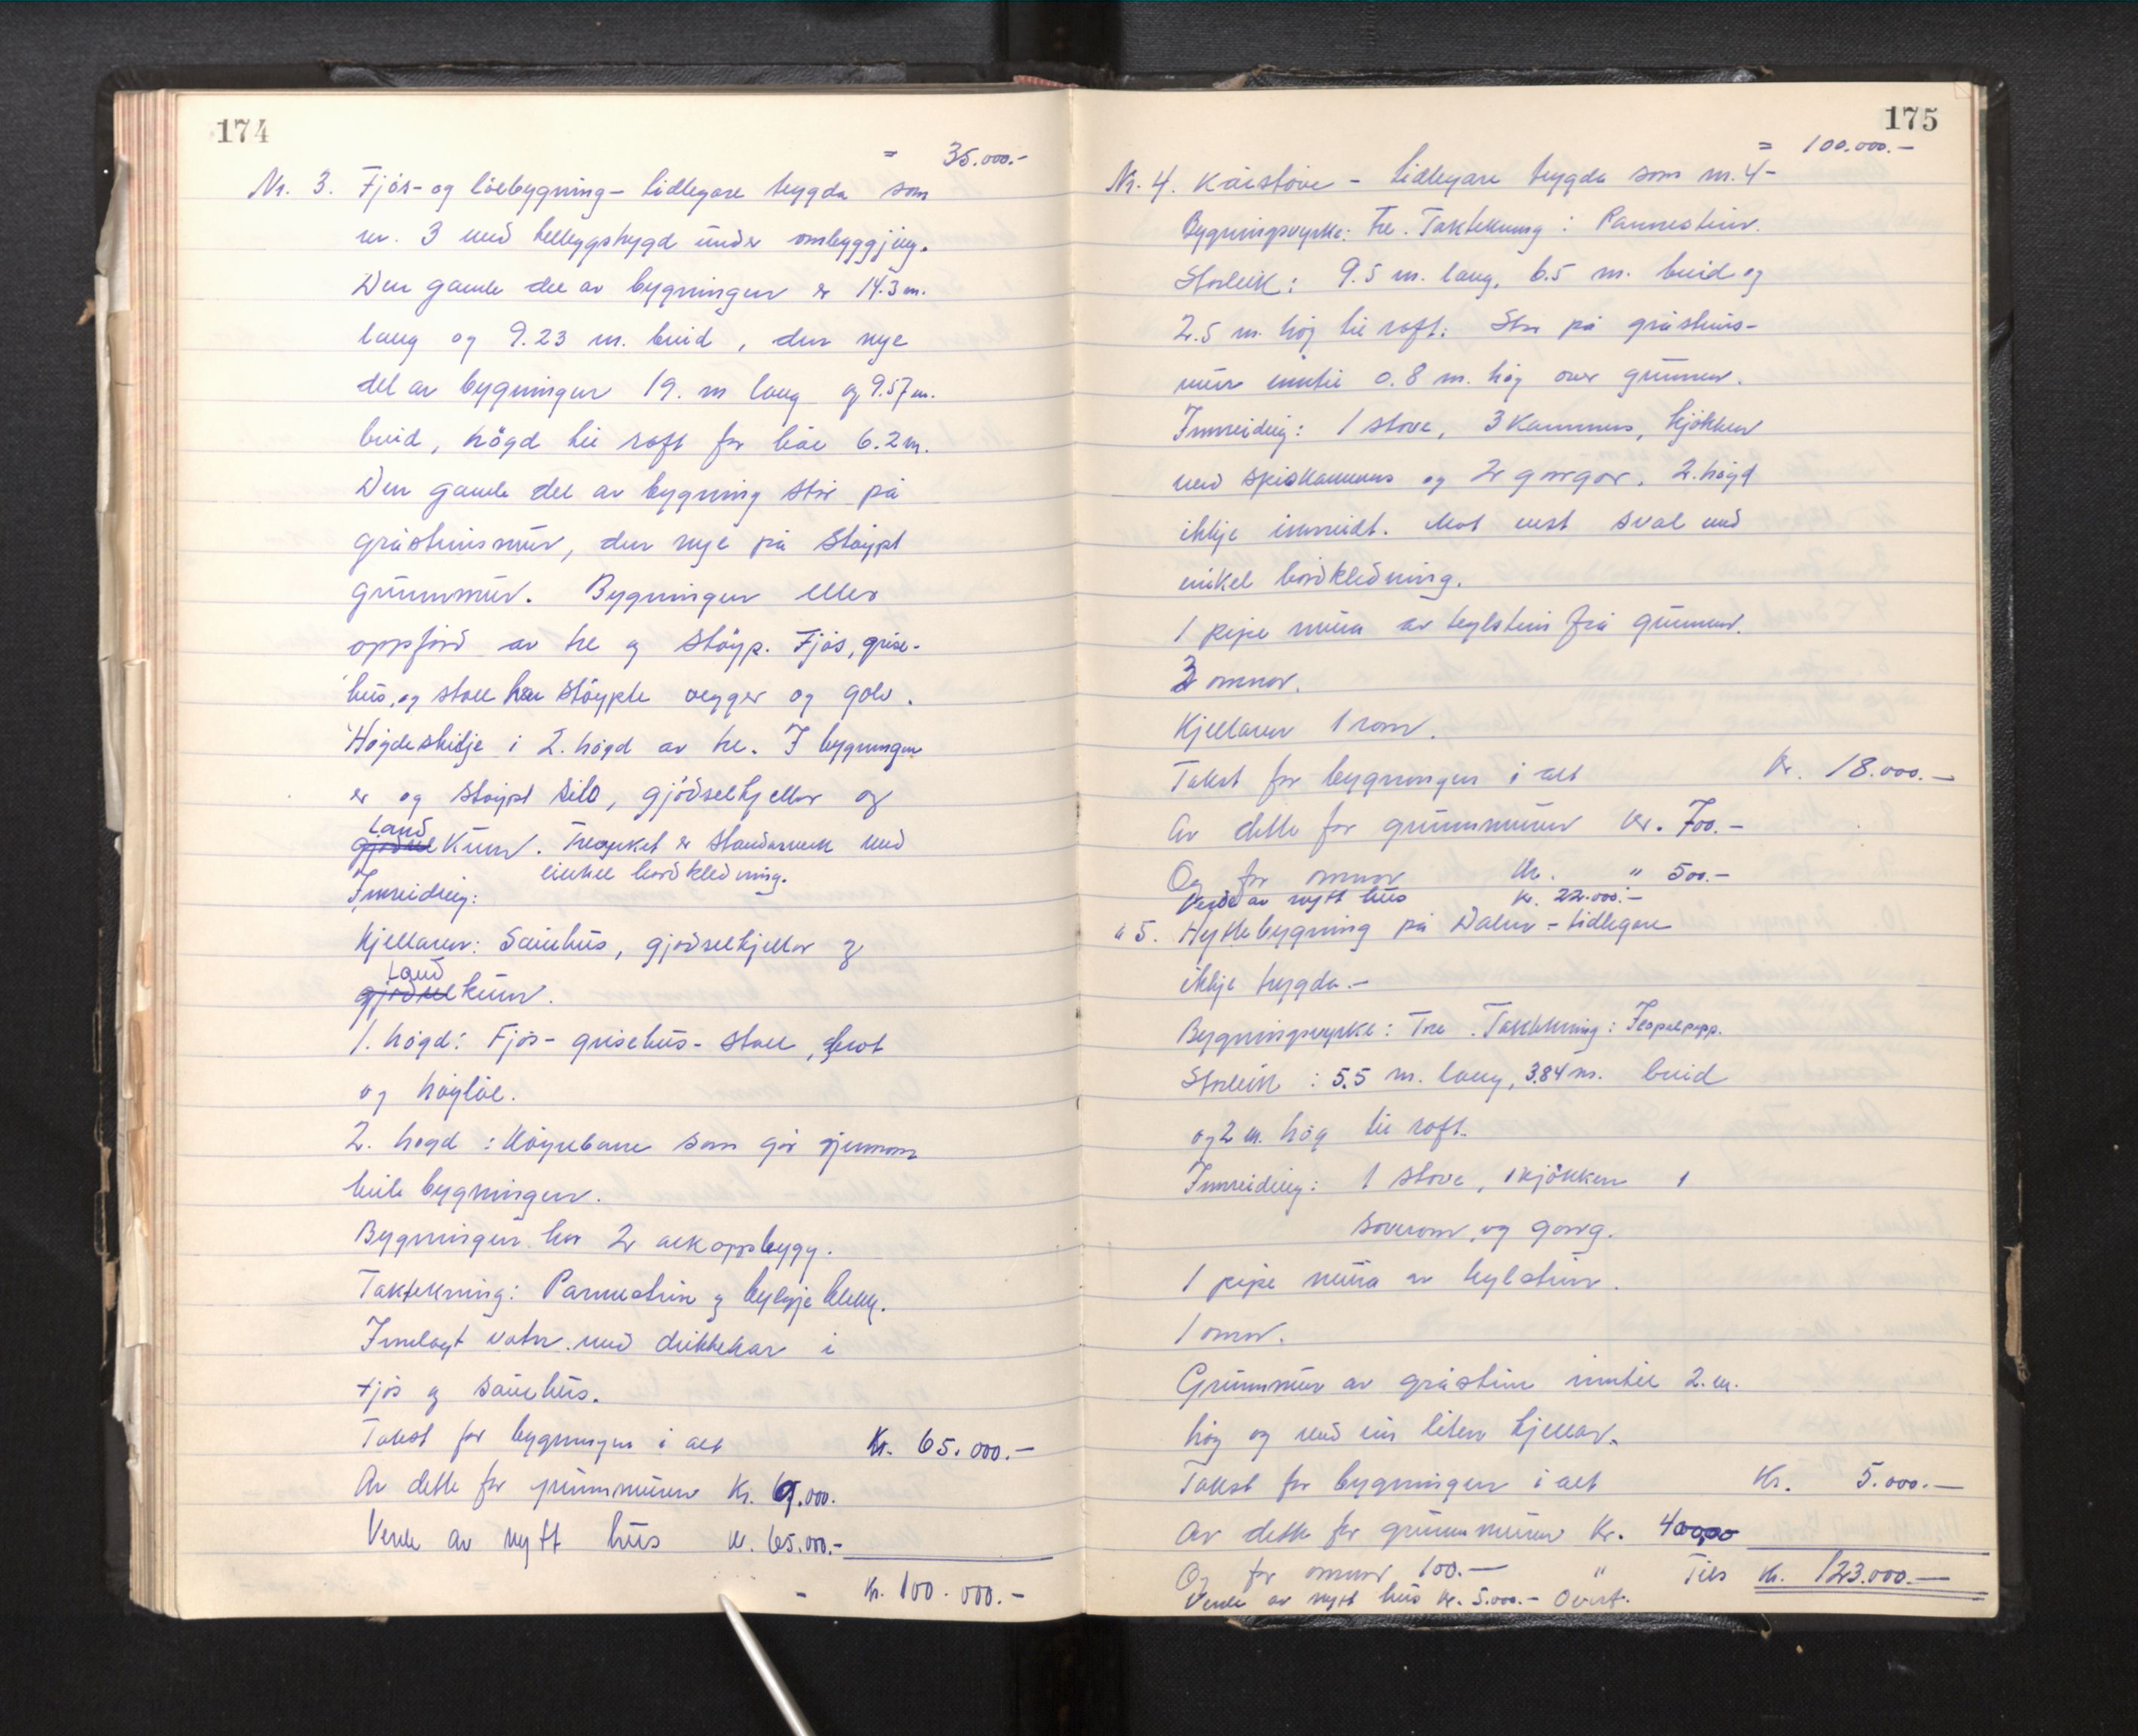 174
= 35.000.-
Nr. 3. Fjös- og löebygning - tidlegare trygda som
nr. 3 med tilleggstrygd under ombyggjing.
Den gamle del av bygningen er 14.3 m.
lang og 9.23 m. breid, den nye
del av bygningen 19. m lang og 9.57 m.
breid, högd til raft for löe 6.2 m.
Den gamle del av bygning står på
gråsteinsmur, den nye på stöypt
grunnmur. Bygningen elles
oppförd av tre og stöyp. Fjös, grise-
hus, og stall har stöypte vegger og golv.
Högdeskilje i 2. högd av tre. I bygningen
er og stöypt silo, gjödselkjellar og
land
gjödsel kum. Treverket er standarverk med
einkel bordkledning.
Innreiding:
Kjellaren: Sauehus, gjödselkjellar og
land
gjödsel kum.
1. högd: Fjös - grisehus - stall,
og höyløe.
2. högd: Köyrebane som går gjennom
heile bygningen.
Bygningen har 2 arkoppbygg.
Taktekning: Pannestein og bylgjeblekk.
Innlagt vatn med drikkekar i
fjös og sauehus.
Takst for bygningen i alt Kr. 65.000.-
Av dette for grunnmuren Kr. 6.000.
Verde av nytt hus kr. 65.000.-
- Kr. 100.000.-
175
= 100.000.-
Nr. 4. Kårstove - tidlegare trygda som nr. 4 -
Bygningsvyrke: Tre. Taktekning: Pannestein.
Storleik: 9.5 m. lang, 6.5 m. breid og
2.5 m. høg til raft. Står på gråsteins-
mur inntil 0.8 m. høg over grunnen.
Innreiding: 1 stove, 3 kammers, kjökken
med spiskammers og 2 gangar. 2. högd
ikkje innreidt. Mot vest sval med
enkel bordkledning.
1 pipe mura av teglstein frå grunnen.
3 omnar.
Kjellaren 1 rom.
Takst for bygningen i alt Kr. 18.000.-
Av dette for grunnmuren kr. 700.-
Og for omnar Kr. " 500.-
Verde av nytt hus Kr. 22.000.-
" 5. Hyttebygning på Dalen - tidlegare
ikkje trygda.-
Bygningsvyrke: Tre. Taktekning:
Storleik: 5.5 m. lang, 3.84 m. breid
og 2 m. høg til raft.
Innreiding: 1 stove, 1 kjökken 1
soverom, og gang.
1 pipe mura av teglstein.
1 omn.
Grunnmur av gråstein inntil 2. m.
høg og med ein liten kjellar.
Takst for bygningen i alt Kr. 5.000.-
Av dette for grunnmuren Kr. 400,00
Og for omnar 100.- " Tils Kr. 123.000.-
Verde av nytt hus Kr. 5.000.- Overf.